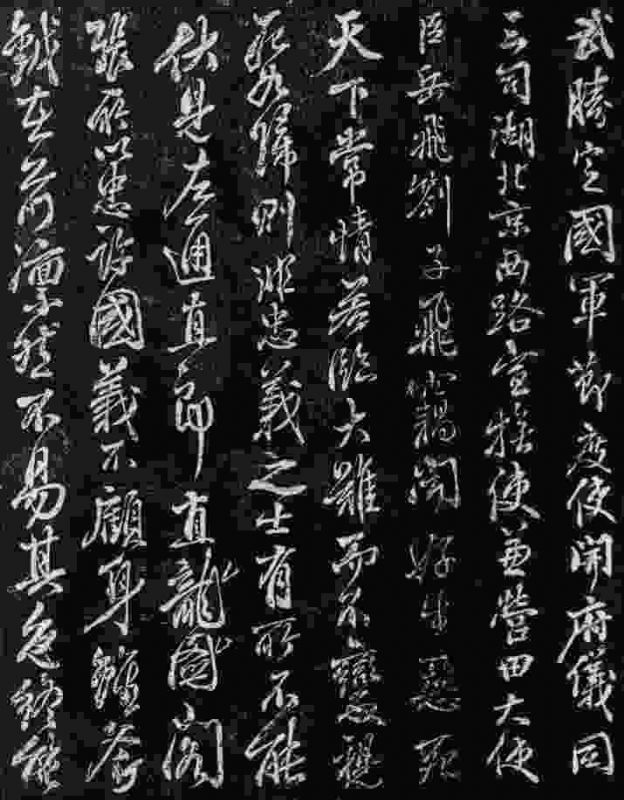 武勝定國軍節度使開府儀同
三司湖北京西路宣撫使兼營田大使
臣岳飛劄子飛竊聞好生惡死
天下常情若臨大難而不變視
死如歸則非忠義之士有所不能
伏見左通直郎直龍圖閣
張所以忠許國義不顧身雖斧
鉞在前凜然不易其色終能